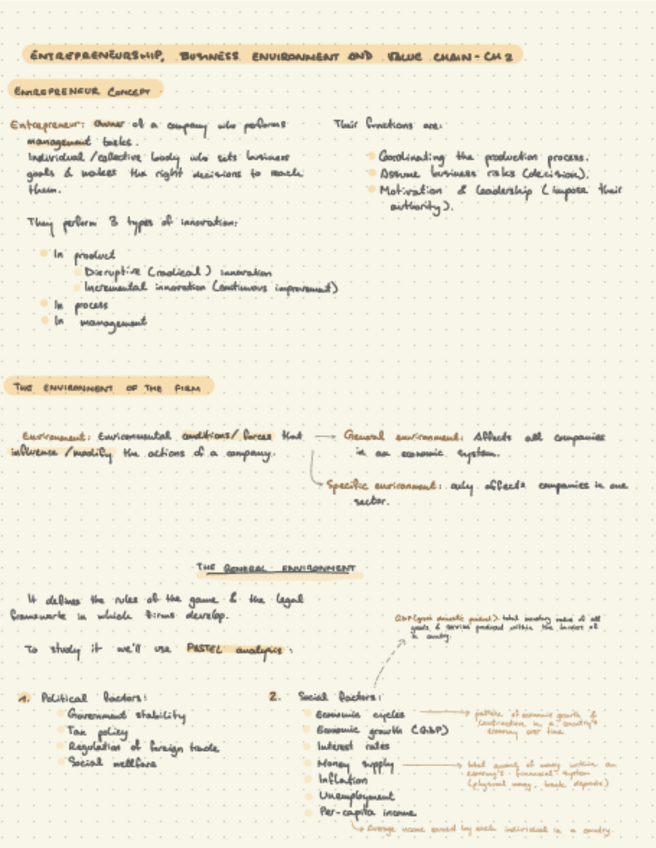 ENTREPRENEURSHIP, BUSINESS ENVIRONMENT AND VALUE CHAIN - CH 2
ENTREPRENEUR CONCEPT
Entrepreneur: owner of a company who performs
management tasks.
Individual/collective body who sets business
goals & makes the right decisions to reach
them.
They perform 3 types of innovation:
In product
Disruptive (radical) innovation
Incremental innovation (continuous improvement)
In process
In management
Their functions are:
Coordinating the production process.
Assume business risks (decision).
Motivation & leadership (impose their
authority).
THE ENVIRONMENT OF THE FIRM
Environment: Environmental conditions/forces that
influence/modify the actions of a company.
General environment: Affects all companies
in an economic system.
Specific environment: only affects companies in one
sector.
THE GENERAL ENVIRONMENT
It defines the rules of the game & the legal
framework in which firms develop.
To study it we'll use PASTEL analysis:
1. Political factors:
Government stability
Tax policy
Regulation of foreign trade
Social wellfare
GDP (gross domestic product): total monetary value of all
goods & services produced within the borders of
a country.
2. Social factors:
Economic cycles
Economic growth (GDP)
Interest rates
Money supply
Inflation
Unemployment
Per-capita income
pattern of economic growth &
contraction in a country's
economy over time
total amount of money within an
economy's financial system
(physical money, bank deposits)
Average income earned by each individual in a country.